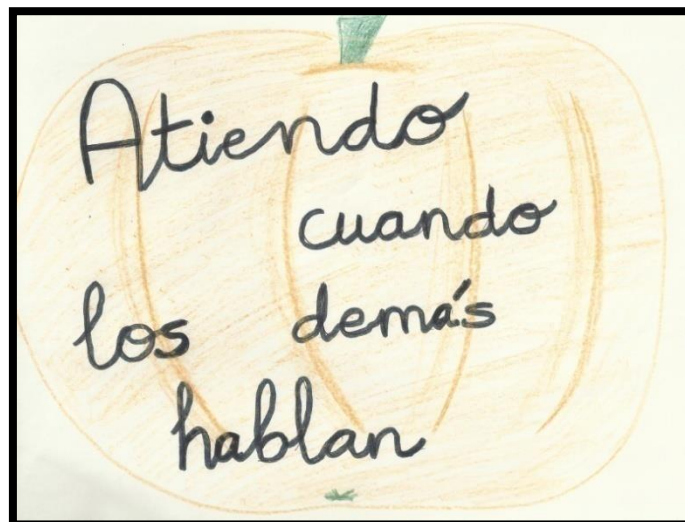 Atiendo
cuando
los demás
hablan